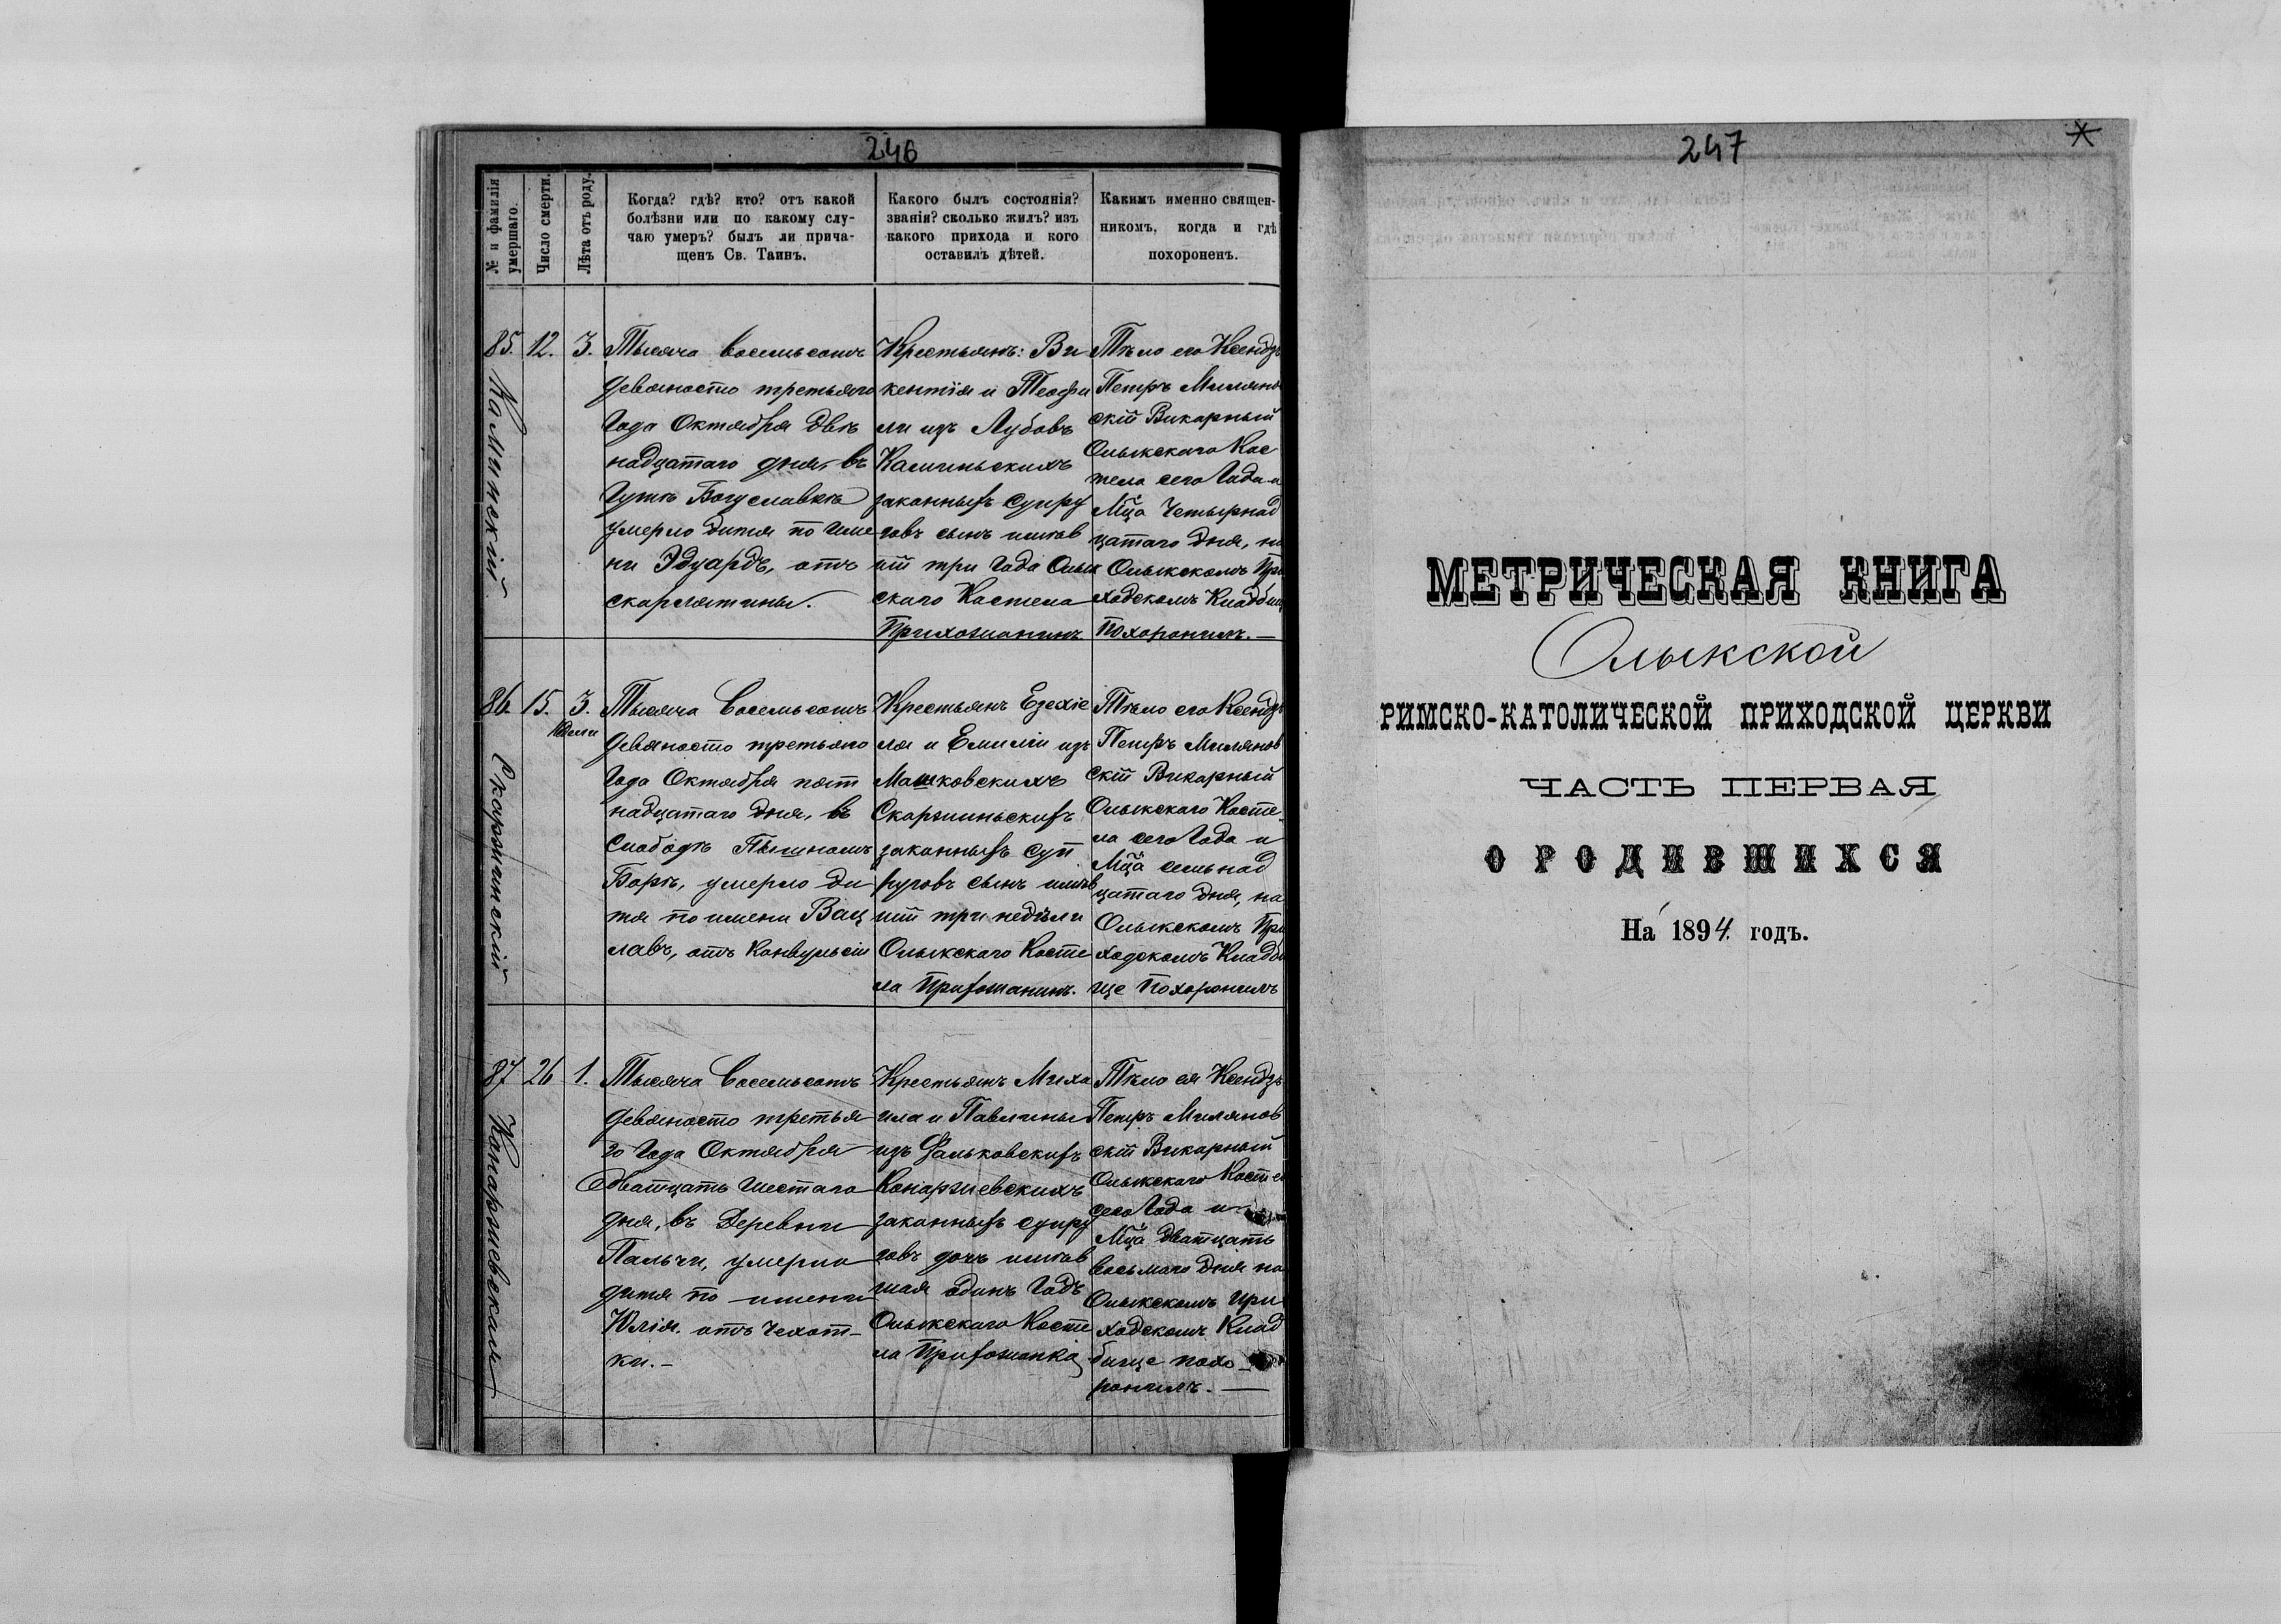 246
№ и фамилія умершаго.
Число смерти.
Лѣта отъ роду.
Когда? гдѣ? кто? отъ какой
болѣзни или по какому слу-
чаю умеръ? былъ ли прича-
щенъ Св. Таинъ.
Какого былъ состоянія?
званія? сколько жилъ? изъ
какого прихода и кого
оставилъ дѣтей.
Какимъ именно священ-
никомъ, когда и гдѣ
похороненъ.
85.
Каминскій
12.
3.
Тысяча восемьсотъ
девяносто третьяго
Года Октября двѣ
надцатаго дня, въ
Гутѣ Богуславкѣ
умерло дитя по име
ни Эдуардъ, отъ
скарлятины.
Крестьянъ: Ви
кентія и Теофи
ли изъ Лубовъ
Каминьскихъ
законныхъ супру
говъ сынъ имѣв
шій три Года Олык
скаго Костела
Прихожанинъ.
Тѣло его Ксендзъ
Петръ Милянов
скій Викарный
Олыкскаго Кос
тела сего Года и
Мца Четырнад
цатаго дня, на
Олыкскомъ При
ходскомъ Кладби
Похоронилъ.—
86.
Скаржинскій
15.
3.
недели
Тысяча Восемьсотъ
девяносто третьяго
Года Октября пят
надцатаго дня, въ
Слободѣ Пышномъ
Борѣ, умерло ди
тя по имени Вац
лавъ, отъ Конвульсіи
Крестьянъ Езекіе
ля и Емиліи изъ
Машковскихъ
Скаржиньскихъ
законныхъ суп
руговъ сынъ имѣв
шій три недѣли
Олыкскаго Косте
ла Прихожанинъ.
Тѣло его Ксендзъ
Петръ Милянов
скій Викарный
Олыкскаго Косте
ла сего Года и
Мца семьнад
цатаго дня, на
Олыкскомъ При
ходскомъ Кладби
ще Похоронилъ
87
Конаржевская
26
1.
Тысяча Восемьсотъ
девяносто третья
го Года Октября
Дватцать Шестаго
дня, въ Деревни
Пальчи, умерло
дитя по имени
Юлія. отъ Чехот-
ки.-
Крестьянъ Миха
ила и Павлины
изъ Фальковскихъ
Конаржевскихъ
законныхъ супру
говъ дочь имѣв
шая одинъ Годъ
Олыкскаго Косте
ла Прихожанка
Тѣло ея Ксендзъ
Петръ Милянов
скій Викарный
Олыкскаго Костел
сего Года и
Мца Дватцать
восьмаго дня на
Олыкскомъ при
ходскомъ Клад
бище похо
ронилъ.—
247
МЕТРИЧЕСКАЯ КНИГА
Олыкской
РИМСКО-КАТОЛИЧЕСКОЙ ПРИХОДСКОЙ ЦЕРКВИ
ЧАСТЬ ПЕРВАЯ
О РОДИВШИХСЯ
На 1894. годъ.